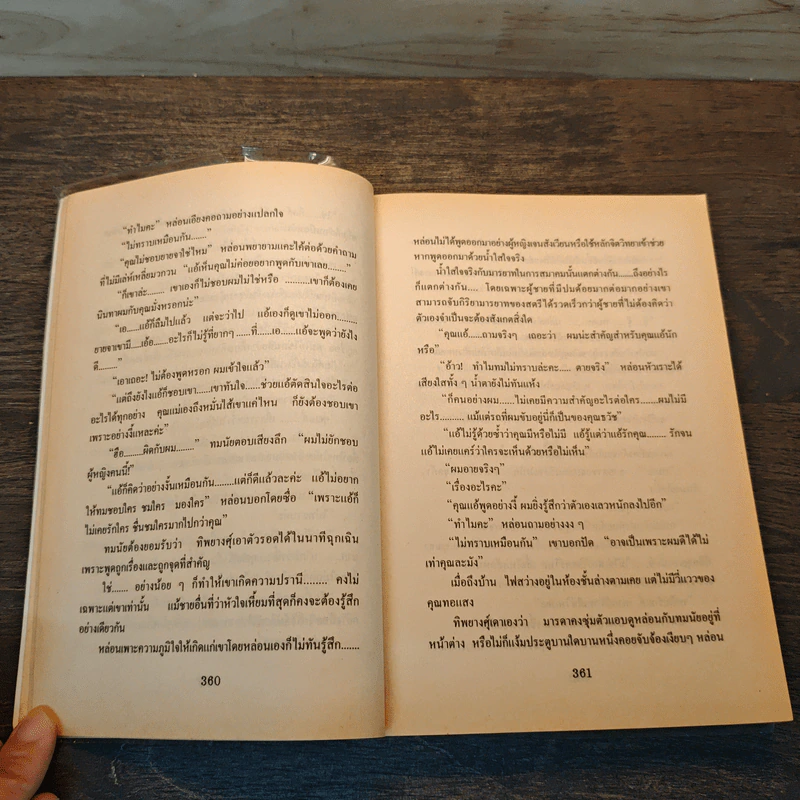 “ทำไมคะ” หล่อนเอียงคอถามอย่างแปลกใจ
“ไม่ทราบเหมือนกัน.......”
“คุณไม่ชอบยายจาใช่ไหม” หล่อนพยายามแคะไค้ต่อด้วยคำถาม
ที่ไม่มีเล่ห์เหลี่ยมวกวน “แอ้เห็นคุณไม่ค่อยอยากพูดกับเขาเลย........”
“ก็เขาล่ะ........ เขาเองก็ไม่ชอบผมไม่ใช่หรือ ..........เขาก็ต้องเคย
นินทาผมกับคุณมั่งหรอกน่ะ”
“เอ......แอ้ก็ลืมไปแล้ว แต่จะว่าไป แอ้เองก็ดูเขาไม่ออก........
ยายจาเขามี.....เอ้อ......อะไรก็ไม่รู้ที่ยากๆ ......ที่.....เอ.....แอ้จะพูดว่ายังไง
ดี........”
“เอาเถอะ! ไม่ต้องพูดหรอก ผมเข้าใจแล้ว”
“แต่ถึงยังไงแอ้ก็ชอบเขา......เขาทันใจ......ช่วยแอ้ตัดสินใจอะไรต่อ
อะไรได้ทุกอย่าง คุณแม่เองถึงหมั่นไส้เขาแค่ไหน ก็ยังต้องชอบเขา
เพราะอย่างงี้แหละค่ะ”
“ฮือ........ผิดกับผม........” ทมนัยตอบเสียงลึก “ผมไม่ยักชอบ
ผู้หญิงคนนี้!”
“แอ้ก็คิดว่าอย่างงั้นเหมือนกัน........แต่ก็ดีแล้วละค่ะ แอ้ไม่อยาก
ให้ทมชอบใคร ชมใคร มองใคร” หล่อนบอกโดยซื่อ “เพราะแอ้ก็
ไม่เคยรักใคร ชื่นชมใครมากไปกว่าคุณ”
ทมนัยต้องยอมรับว่า ทิพยางศุ์เอาตัวรอดได้ในนาทีฉุกเฉิน
เพราะพูดถูกเรื่องและถูกจุดที่สำคัญ
ใช่....... อย่างน้อย ๆ ก็ทำให้เขาเกิดความปรานี........ คงไม่
เฉพาะแต่เขาเท่านั้น แม้ชายอื่นที่ว่าหัวใจเหี้ยมที่สุดก็คงจะต้องรู้สึก
อย่างเดียวกัน
หล่อนเพาะความภูมิใจให้เกิดแก่เขาโดยหล่อนเองก็ไม่ทันรู้สึก.......
360
หล่อนไม่ได้พูดออกมาอย่างผู้หญิงเจนสังเวียนหรือใช้หลักจิตวิทยาเข้าช่วย
หากพูดออกมาด้วยน้ำใสใจจริง
น้ำใสใจจริงกับมารยาทในการสมาคมนั้นแตกต่างกัน......ถึงอย่างไร
ก็แตกต่างกัน.... โดยเฉพาะผู้ชายที่มีปมด้อยมากต่อมากอย่างเขา
สามารถจับกิริยามารยาทของสตรีได้รวดเร็วกว่าผู้ชายที่ไม่ต้องคิดว่า
ตัวเองจำเป็นจะต้องสังเกตสิ่งใด
“คุณแอ้.......ถามจริงๆ เถอะว่า ผมน่ะสำคัญสำหรับคุณแอ้นัก
หรือ”
“อ้าว! ทำไมทมไม่ทราบล่ะคะ..... ตายจริง” หล่อนหัวเราะได้
เสียงใสทั้ง ๆ น้ำตายังไม่ทันแห้ง
“ก็คนอย่างผม......ไม่เคยมีความสำคัญอะไรต่อใคร.......ผมไม่มี
อะไร........ แม้แต่รถที่ผมขับอยู่นี่ก็เป็นของคุณธวัช”
“แอ้ไม่รู้ด้วยซ้ำว่าคุณมีหรือไม่มี แอ้รู้แต่ว่าแอ้รักคุณ........ รักจน
แอ้ไม่เคยแคร์ว่าใครจะเห็นด้วยหรือไม่เห็น”
“ผมอายจริงๆ”
“เรื่องอะไรคะ”
“คุณแอ้พูดอย่างงี้ ผมยิ่งรู้สึกว่าตัวเองเลวหนักลงไปอีก”
“ทำไมคะ” หล่อนถามอย่างงง ๆ
“ไม่ทราบเหมือนกัน” เขาบอกปัด “อาจเป็นเพราะผมดีได้ไม่
เท่าคุณละมัง”
เมื่อถึงบ้าน ไฟสว่างอยู่ในห้องชั้นล่างตามเคย แต่ไม่มีวี่แววของ
คุณทอแสง
ทิพยางศุ์เดาเองว่า มารดาคงซุ่มตัวแอบดูหล่อนกับทมนัยอยู่ที่
หน้าต่าง หรือไม่ก็แง้มประตูบานใดบานหนึ่งคอยจับจ้องเงียบๆ หล่อน
361